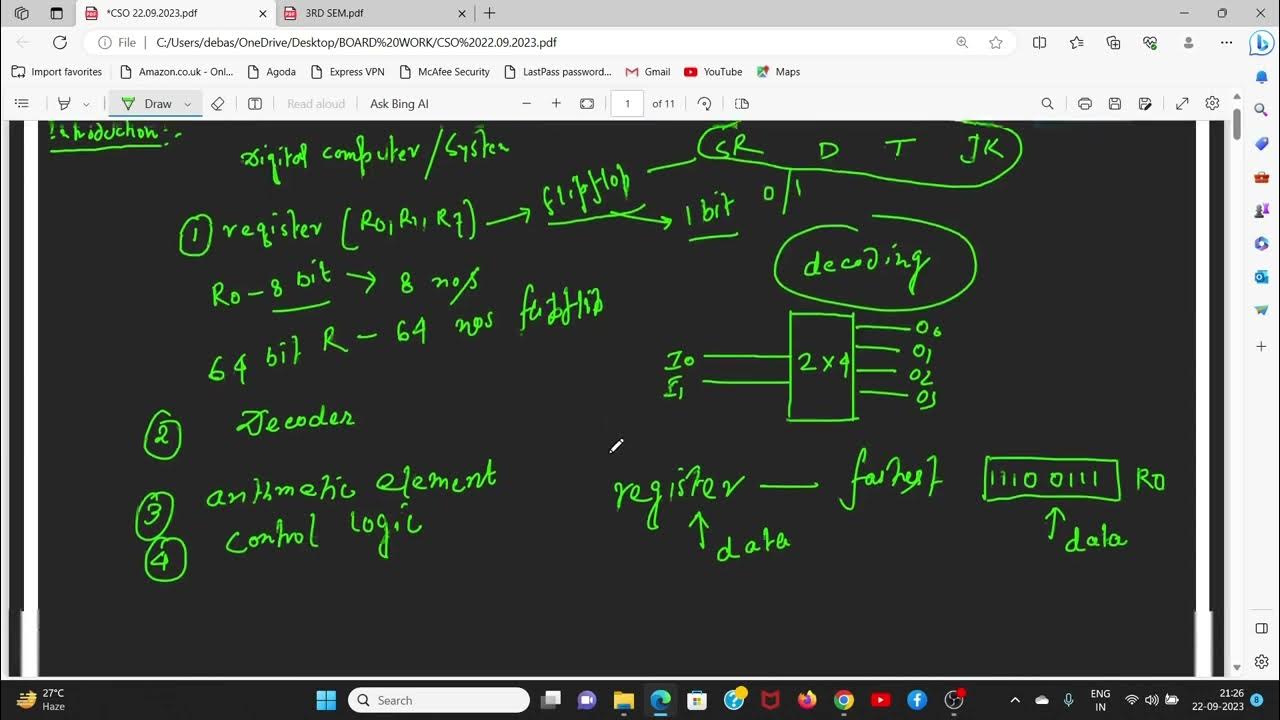 *CSO 22.09.2023.pdf
3RD SEM.pdf
File
C:/Users/debas/OneDrive/Desktop/BOARD%20WORK/CSO%2022.09.2023.pdf
Import favorites
Amazon.co.uk - Onl...
Agoda
Express VPN
McAfee Security
LastPass password...
Gmail
YouTube
Maps
Draw
Read aloud
Ask Bing AI
1 of 11
Introduction :-
Digital computer / System
SR D T JK
① register [R0, R1, R7] → flipflop → 1 bit 0/1
R0 - 8 bit → 8 no/s
64 bit R - 64 nos flipflip
decoding
I0
I1
2 x 4
O0
O1
O2
O3
② Decoder
③ arithmetic element
④ control logic
register — fastest
↑ data
1110 0111 R0
↑ data
27°C
Haze
Search
ENG
IN
21:26
22-09-2023
8